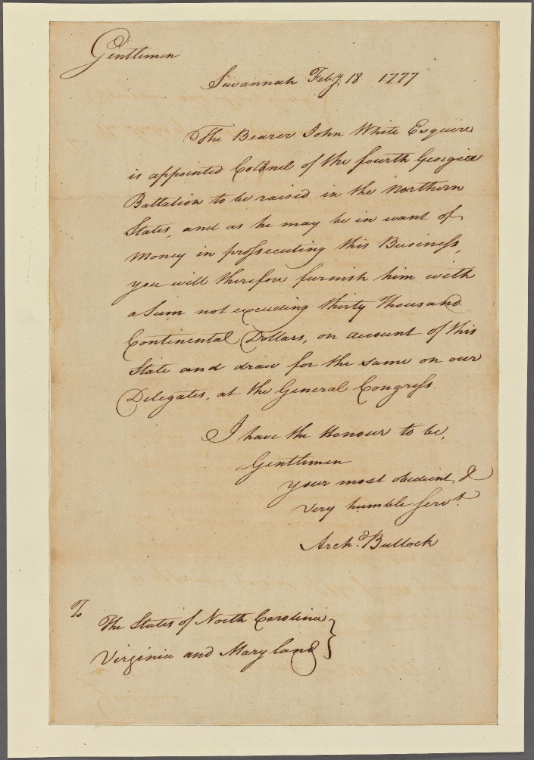 Gentlemen
Savannah Feb.y 18 1777
The Bearer John White Esquire
is appointed Colonel of the fourth Georgia
Battalion to be raised in the Northern
States, and as he may be in want of
Money in prossecuting this Business,
you will therefore furnish him with
a Sum not exceeding thirty thousand
Continental Dollars, on account of this
State and draw for the same on our
Delegates, at the General Congress.
I have the Honour to be,
Gentlemen
your most obedient &
very humble Serv.t
Arch.d Bullock
To
The States of North Carolina
Virginia and Maryland }